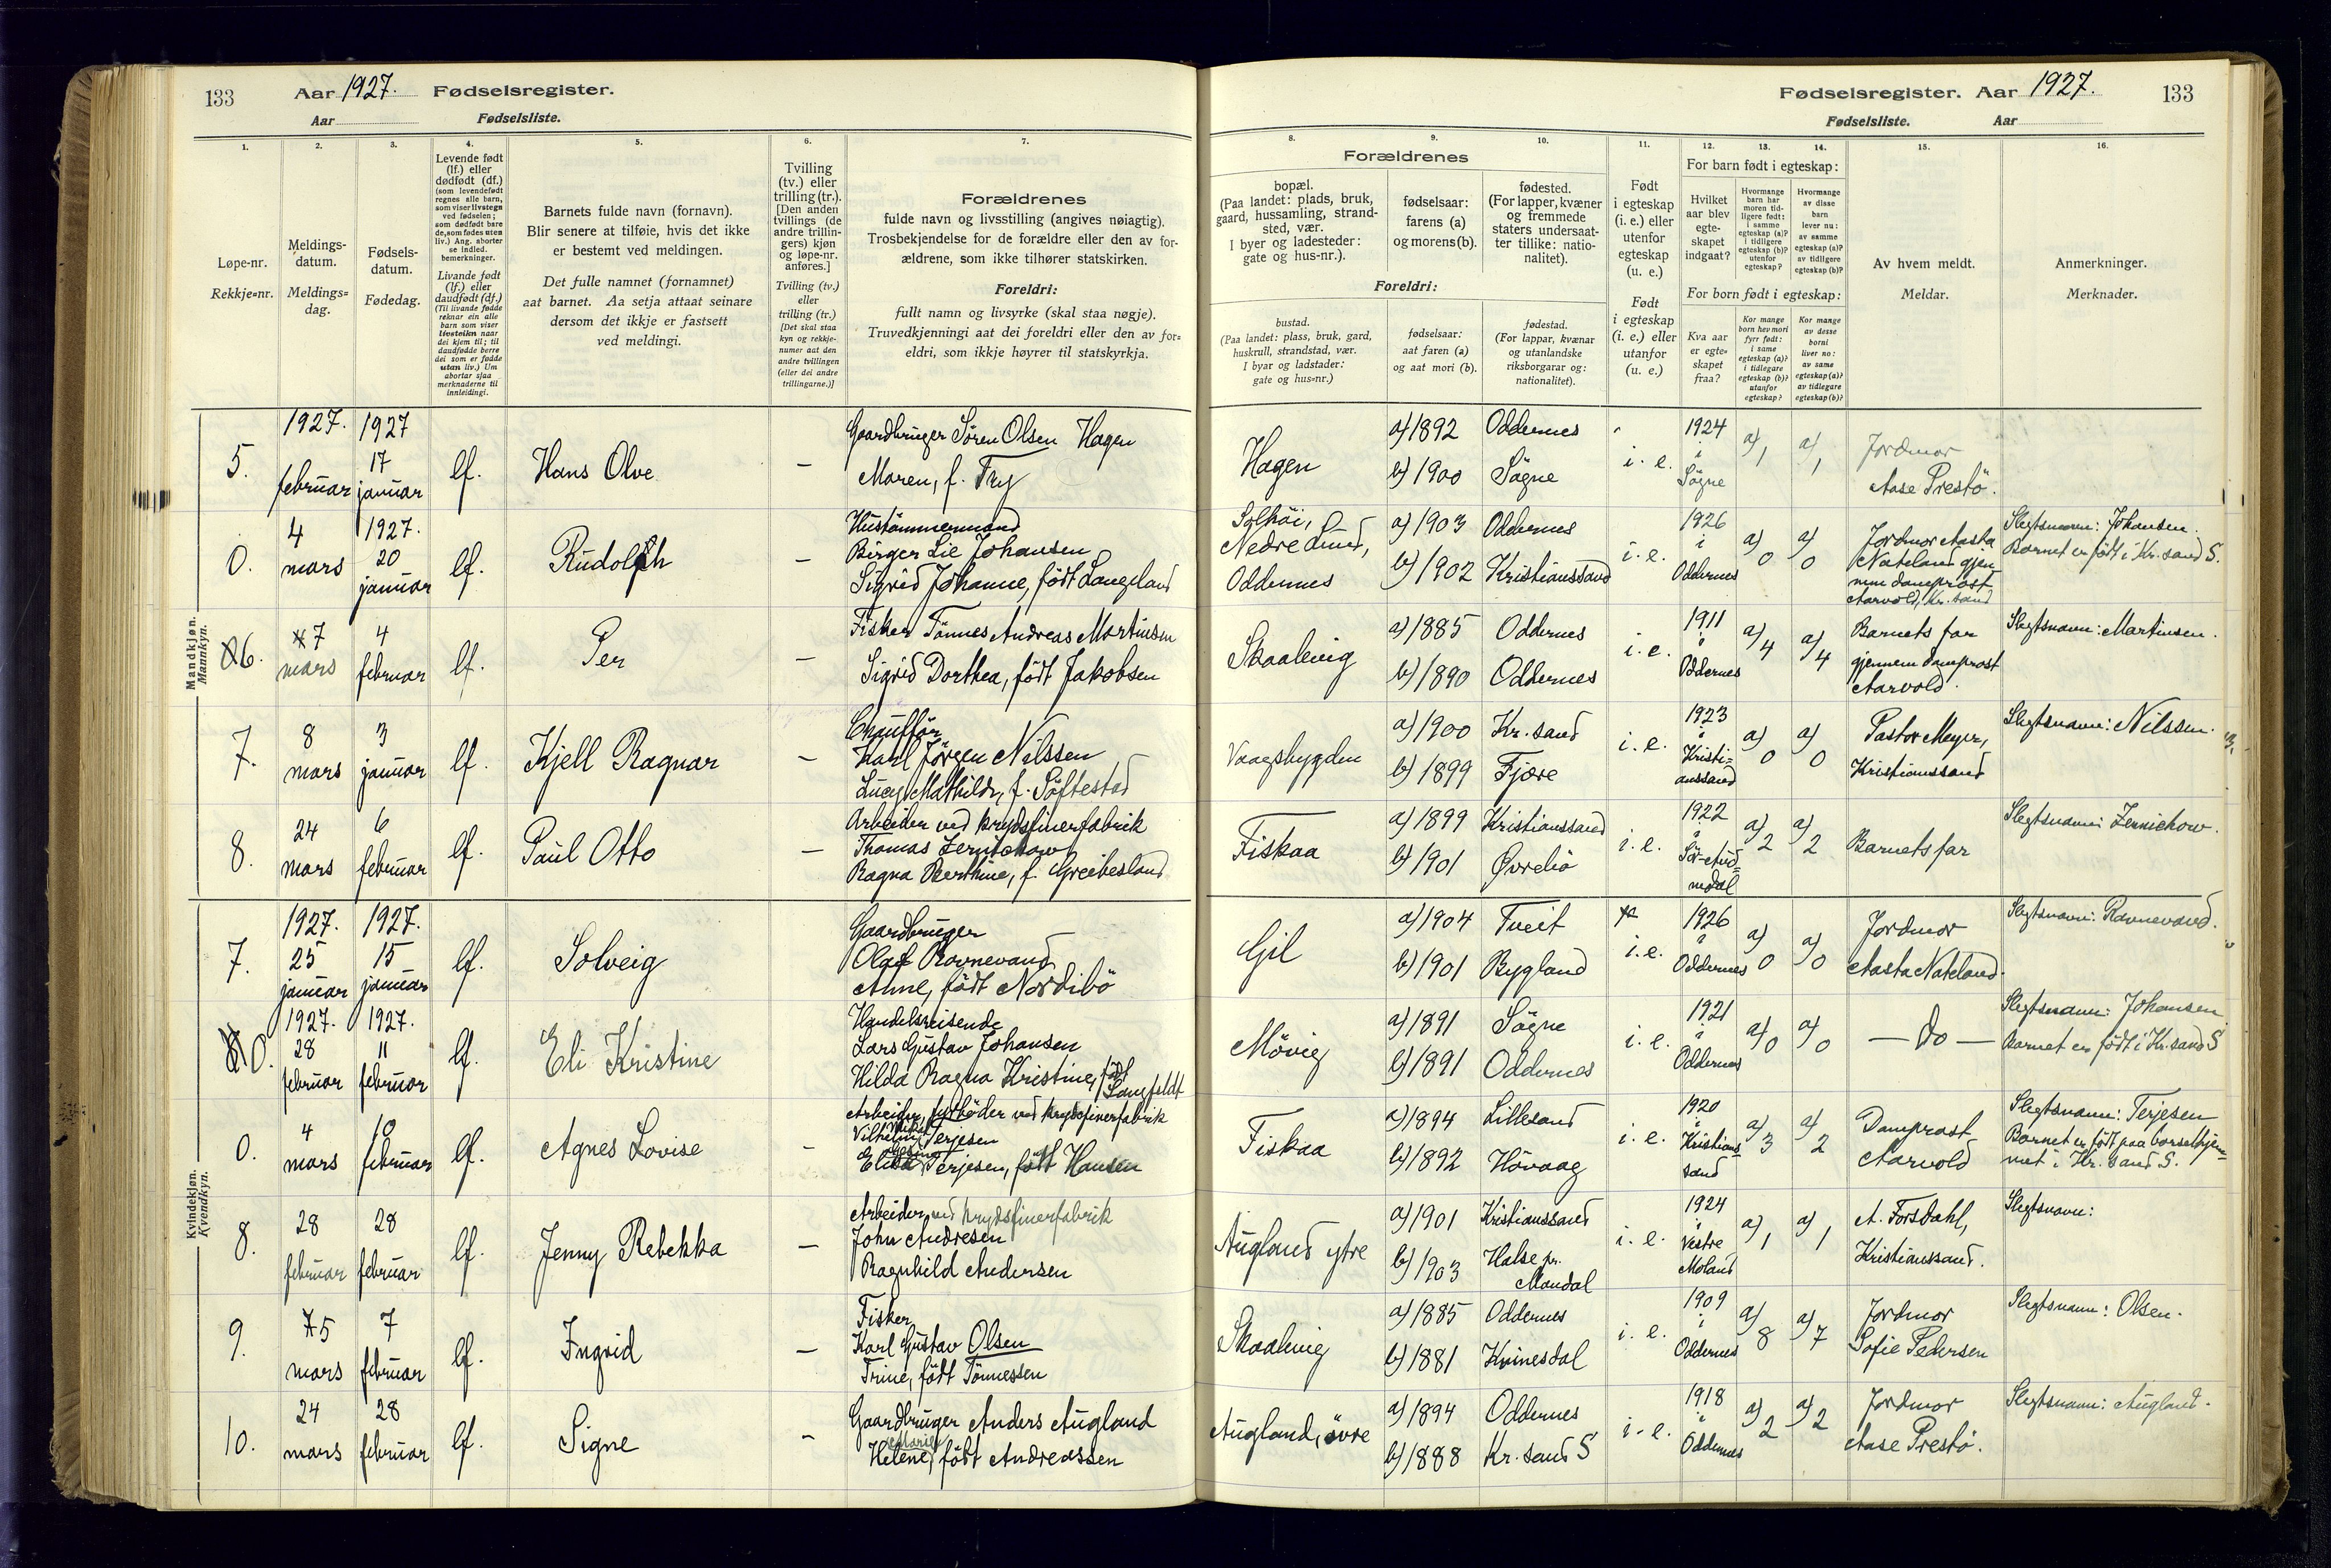 133
Aar 1927.
Fødselsregister.
Aar
Fødselsliste.
Fødselsregister. Aar 1927.
133
Fødselsliste. Aar
1.
2.
3.
4.
5.
6.
7.
8.
9.
10.
11.
12.
13.
14.
15.
16.
Løpe-nr.
Rekkje=nr.
Meldings-
datum.
Meldings=
dag.
Fødsels-
datum.
Fødedag.
Levende født
(lf.) eller
dødfødt (df.)
(som levendefødt
regnes alle barn,
som viser livstegn
ved fødselen;
som dødfødt bare
de, som fødes uten
liv.) Ang. aborter
se indled.
bemerkninger.
Livande født
(lf.) eller
daudfødt (df.)
(Til livande fødde
reknar ein alle
barn som viser
livsteikn naar
dei kjem til; til
daudfødde berre
dei som er fødde
utan liv.) Um
abortar sjaa
merknaderne til
innleidingi.
Barnets fulde navn (fornavn).
Blir senere at tilføie, hvis det ikke
er bestemt ved meldingen.
Det fulle namnet (fornamnet)
aat barnet. Aa setja attaat seinare
dersom det ikkje er fastsett
ved meldingi.
Tvilling
(tv.) eller
trilling (tr.).
[Den anden
tvillings (de
andre trillin-
gers) kjøn
og løpe-nr.
anføres.]
Tvilling (tv.)
eller
trilling (tr.)
[Det skal staa
kyn og rekkje-
numer aat den
andre tvillingen
(eller dei andre
trillingarne.)]
Forældrenes
fulde navn og livsstilling (angives nøiagtig).
Trosbekjendelse for de forældre eller den av for-
ældrene, som ikke tilhører statskirken.
Foreldri:
fullt namn og livsyrke (skal staa nøgje).
Truvedkjenningi aat dei foreldri eller den av for=
eldri, som ikkje høyrer til statskyrkja.
Forældrenes
bopæl.
(Paa landet: plads, bruk,
gaard, hussamling, strand-
sted, vær.
I byer og ladesteder:
gate og hus-nr.).
fødselsaar:
farens (a)
og morens (b).
fødested.
(For lapper, kvæner
og fremmede
staters undersaat-
ter tillike: natio-
nalitet).
Foreldri:
bustad.
(Paa landet: plass, bruk, gard,
huskrull, strandstad, vær.
I byar og ladstader:
gate og hus=nr.)
fødselsaar:
aat faren (a)
og aat mori (b).
fødestad.
(For lappar, kvænar
og utanlandske
riksborgarar og:
nationalitet).
Født
i egteskap
(i. e.) eller
utenfor
egteskap
(u. e.)
Født
i egteskap
(i. e.) eller
utanfor
(u. e.)
For barn født i egteskap:
Hvilket
aar blev
egte-
skapet
indgaat?
Hvormange
barn har
moren tid-
ligere født:
i samme
egteskap (a)?
i tidligere
egteskap (b)?
utenfor
egteskap?
Hvormange
av disse
barn
lever nu:
av samme
egteskap (a)?
av tidligere
egteskap (b)?
For born født i egteskap:
Kva aar
er egte-
skapet
fraa?
Kor mange
born hev mori
fyrr født:
i same
egteskap (a)?
i tidlegare
egteskap (b)?
utanfor
egteskap?
Kor mange
av desse
borni
liver no:
av same
egteskap (a)?
av tidlegare
egteskap (b)?
Av hvem meldt.
Meldar.
Anmerkninger.
Merknader.
Mandkjøn.
Mannkyn.
5.
1927.
februar
1927
17
januar
lf.
Hans Olve
–
Gaardbruger Sören Olsen Hagen
Maren, f. Try
Hagen
a) 1892
b) 1900
Oddernes
Sögne
i. e.
1924
i
Sögne
a) 1
a) 1
Jordmor
Aase Prestö.
0.
4
mars
1927.
20
januar
lf.
Rudolph
–
Hustömmermand
Birger Lie Johansen
Sigrid Johanne, født Langeland
Solhöi,
Nedre Lund,
Oddernes
a) 1903
b) 1902
Oddernes
Kristianssand
i. e.
1926
i
Oddernes
a) 0
a) 0
Jordmor Aasta
Nateland gjen-
nem domprost
Aarvold, Kr. sand
Slegtsnavn: Johansen.
Barnet er født i Kr. sand S.
6.
7
mars
4
februar
lf.
Per
–
Fisker Tönnes Andreas Martinsen
Sigrid Dorthea, født Jakobsen
Skaalevig
a) 1885
b) 1890
Oddernes
Oddernes
i. e.
1911
i
Oddernes
a) 4
a) 4
Barnets far
gjennem domprost
Aarvold.
Slegtsnavn: Martinsen.
7.
8
mars
3
januar
lf.
Kjell Ragnar
–
Chauffør
Karl Jörgen Nilssen
Lucy Mathilde, f. Söftestad
Vaagsbygden
a) 1900
b) 1899
Kr. sand
Fjære
i. e.
1923
i
Kristi-
anssand
a) 0
a) 0
Pastor Meyer,
Kristianssand
Slegtsnavn: Nilssen.
8.
24
mars
6
februar
lf.
Paul Otto
–
Arbeider ved krydsfinerfabrik
Thomas Zernichow
Ragna Berthine, f. Greibesland
Fiskaa
a) 1899
b) 1901
Kristianssand
Øvrebö
i. e.
1922
i
Sör-Aud=
nedal
a) 2
a) 2
Barnets far
Slegtsnavn: Zernichow.
Kvindekjøn.
Kvendkyn.
7.
1927.
25
januar
1927.
15
januar
lf.
Solveig
Gaardbruger
Olaf Ravnevand
Anne, født Nordibö
Gil
a) 1904
b) 1901
Tveit
Bygland
i. e.
1926
i
Oddernes
a) 0
a) 0
Jordmor
Aasta Nateland.
Slegtsnavn: Ravnevand.
0.
1927.
28
februar
1927.
11
februar
lf.
Eli Kristine
Handelsreisende
Lars Gustav Johansen
Hilda Ragna Kristine, født
Langfeldt
Mövig
a) 1891
b) 1891
Sögne
Oddernes
i. e.
1921
i
Oddernes
a) 0
a) 0
— do —
Slegtsnavn: Johansen
Barnet er født i Kr. sand S
0.
4
mars
10
februar
lf.
Agnes Lovise
–
Arbeider, fyrböder ved krydsfinerfabrik
Vilhelm Terjesen
Elise Terjesen, født Hansen
Fiskaa
a) 1894
b) 1892
Lillesand
Hövaag
i. e.
1920
i
Kristians-
sand
a) 3
a) 2
Domprost
Aarvold
Slegtsnavn: Terjesen
Barnet er født paa barselhjem-
met i Kr. sand S.
8.
28
februar
28
februar
lf.
Jenny Rebekka
–
Arbeider ved krydsfinerfabrik
John Andresen
Ragnhild Andersen
Augland ytre
a) 1901
b) 1903
Kristianssand
Halse pr.
Mandal
i. e.
1924
i
Vestre
Moland
a) 1
a) 1
A. Forsdahl,
Kristianssand.
Slegtsnavn:
9.
5
mars
7
februar
lf.
Ingrid
–
Fisker
Karl Gustav Olsen
Trine, født Tönnessen
Skaalevig
a) 1885
b) 1881
Oddernes
Kvinesdal
i. e.
1909
i
Oddernes
a) 8
a) 7
Jordmor
Sofie Pedersen
Slegtsnavn: Olsen.
10.
24
mars
28
februar
lf.
Signe
–
Gaardbruger Anders Augland
Marie
Helene, født Andreassen
Augland, övre
a) 1894
b) 1888
Oddernes
Kr. sand S
i. e.
1918
i
Oddernes
a) 2
a) 2
Jordmor
Aase Prestö.
Slegtsnavn: Augland.